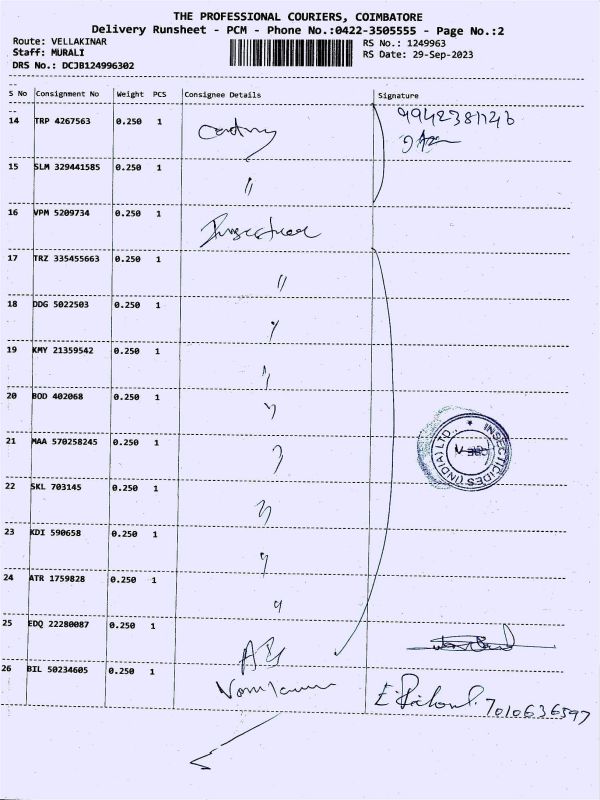 THE PROFESSIONAL COURIERS, COIMBATORE
Delivery Runsheet - PCM - Phone No.:0422-3505555 - Page No.:2
Route: VELLAKINAR
RS No.: 1249963
Staff: MURALI
RS Date: 29-Sep-2023
DRS No.: DCJB124996302
S No Consignment No Weight PCS Consignee Details Signature
14 TRP 4267563 0.250 1 9942381146
15 SLM 329441585 0.250 1 〃
16 VPM 5209734 0.250 1
17 TRZ 335455663 0.250 1 〃
18 DDG 5022503 0.250 1 〃
19 KMY 21359542 0.250 1 〃
20 BOD 402068 0.250 1 〃
21 MAA 570258245 0.250 1 〃
INSECTICIDES (INDIA) LTD.
22 SKL 703145 0.250 1 〃
23 KDI 590658 0.250 1 〃
24 ATR 1759828 0.250 1 〃
25 EDQ 22280087 0.250 1
26 BIL 50234605 0.250 1 7010636597